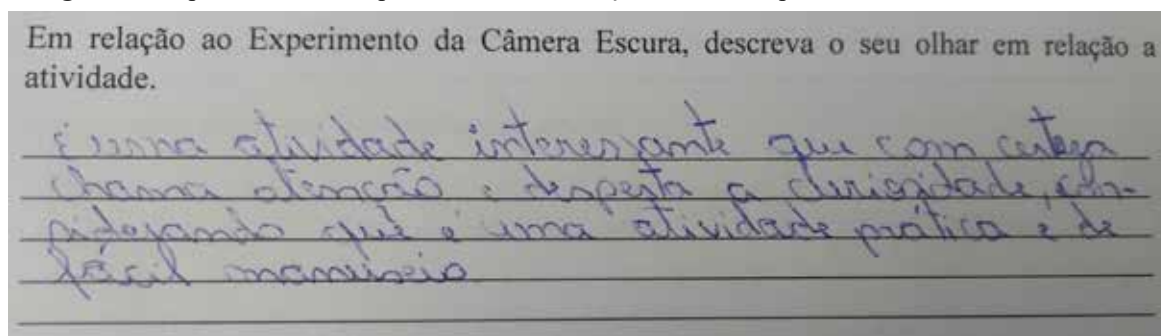 Em relação ao Experimento da Câmera Escura, descreva o seu olhar em relação a
atividade.
É uma atividade interessante que com certeza
chama atenção e desperta a curiosidade, con-
siderando que é uma atividade prática e de
fácil manuseio